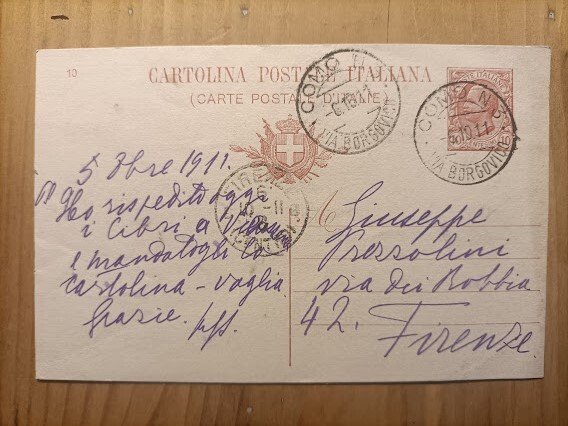 10
CARTOLINA POSTALE ITALIANA
(CARTE POSTALE D'ITALIE)
COMO
-6.10.11
VIA BORGOVICO
COMO N.5
6.10.11
VIA BORGOVICO
FIRENZE
5 8bre 1911.
Ho rispedito oggi
i libri a
e mandatogli la
cartolina-vaglia.
Grazie.
Giuseppe
Prezzolini
via dei Robbia
42. Firenze.